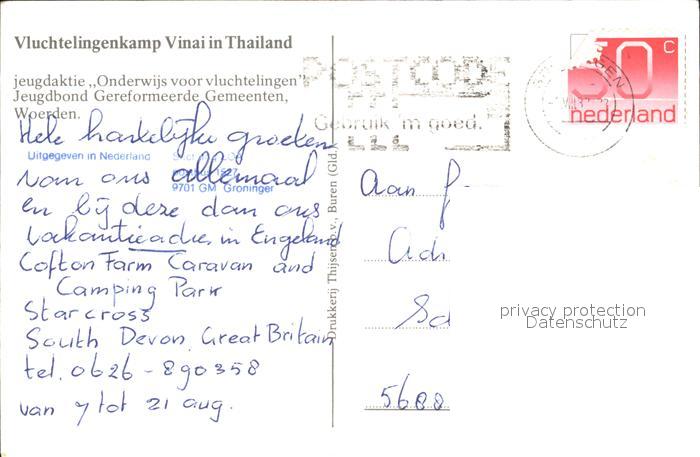 Vluchtelingenkamp Vinai in Thailand
jeugdaktie „Onderwijs voor vluchtelingen”
Jeugdbond Gereformeerde Gemeenten,
Woerden.
Hele hartelijke groeten
Uitgegeven in Nederland
van ons allemaal
9701 GM Groningen
en bij deze dan ons
vakantieadres in Engeland
Cofton Farm Caravan and
Camping Park
Starcross
South Devon, Great Britain
tel. 0626-890358
van 7 tot 21 aug.
Drukkerij Thijsen b.v., Buren (Gld.)
POSTCODE
Gebruik 'm goed.
50 c
nederland
Aan f-
Adr
Sd
5688
privacy protection
Datenschutz